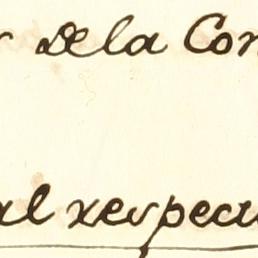 r dela Con
al respecu